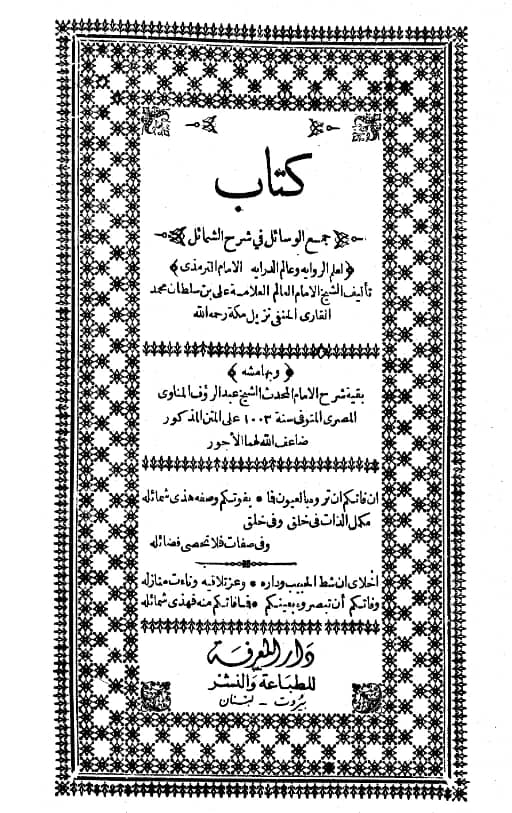 كتاب
جمع الوسائل في شرح الشمائل
﴿لعلم الروايه وعالم الدرايه الامام الترمذى﴾
تأليف الشيخ الامام العالم العلامة على بن سلطان محمد
القارى الحنفى نزيل مكة رحمه الله
﴿وبهامشه﴾
بقية شرح الامام المحدث الشيخ عبد الرؤف المناوى
المصرى المتوفى سنة ١٠٠٣ على المتن المذكور
ضاعف الله لهما الأجور
ان فاتكم ان تروه بالعيون فا * يفوتكم وصفه هذى شمائله
مكمل الذات فى خلق وفى خلق
وفى صفات فلا تحصى فضائله
اخلاى ان شط الحبيب وداره * وعز تلاقيه وناءت منازله
وفاتكم أن تبصروه بعينكم * فافاتكم منه فهذى شمائله
دار المعرفة
للطباعة والنشر
بيروت - لبنان